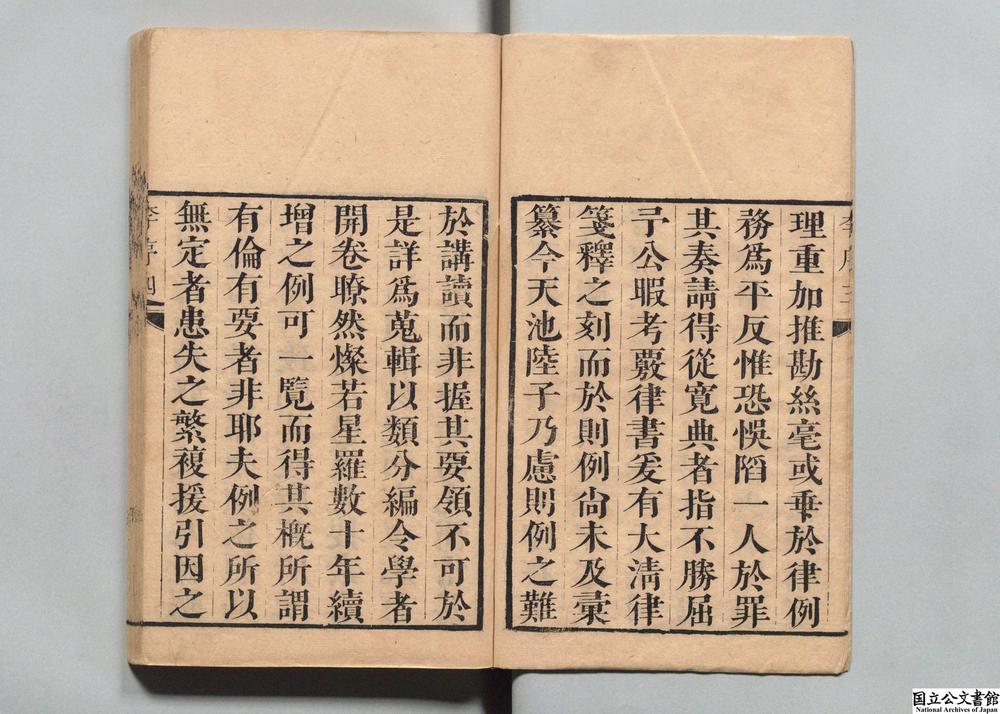 理重加推勘絲毫或乖於律例
務爲平反惟恐悞䧟一人於罪
其奏請得從寛典者指不勝屈
予公暇考覈律書爰有大淸律
箋釋之刻而於則例尙未及彙
纂今天池陸子乃慮則例之難
李序三
於講讀而非握其要領不可於
是詳爲蒐輯以類分編令學者
開卷瞭然燦若星羅數十年續
增之例可一覽而得其槪所謂
有倫有要者非耶夫例之所以
無定者患失之繁複援引因之
李序四
国立公文書館
National Archives of Japan